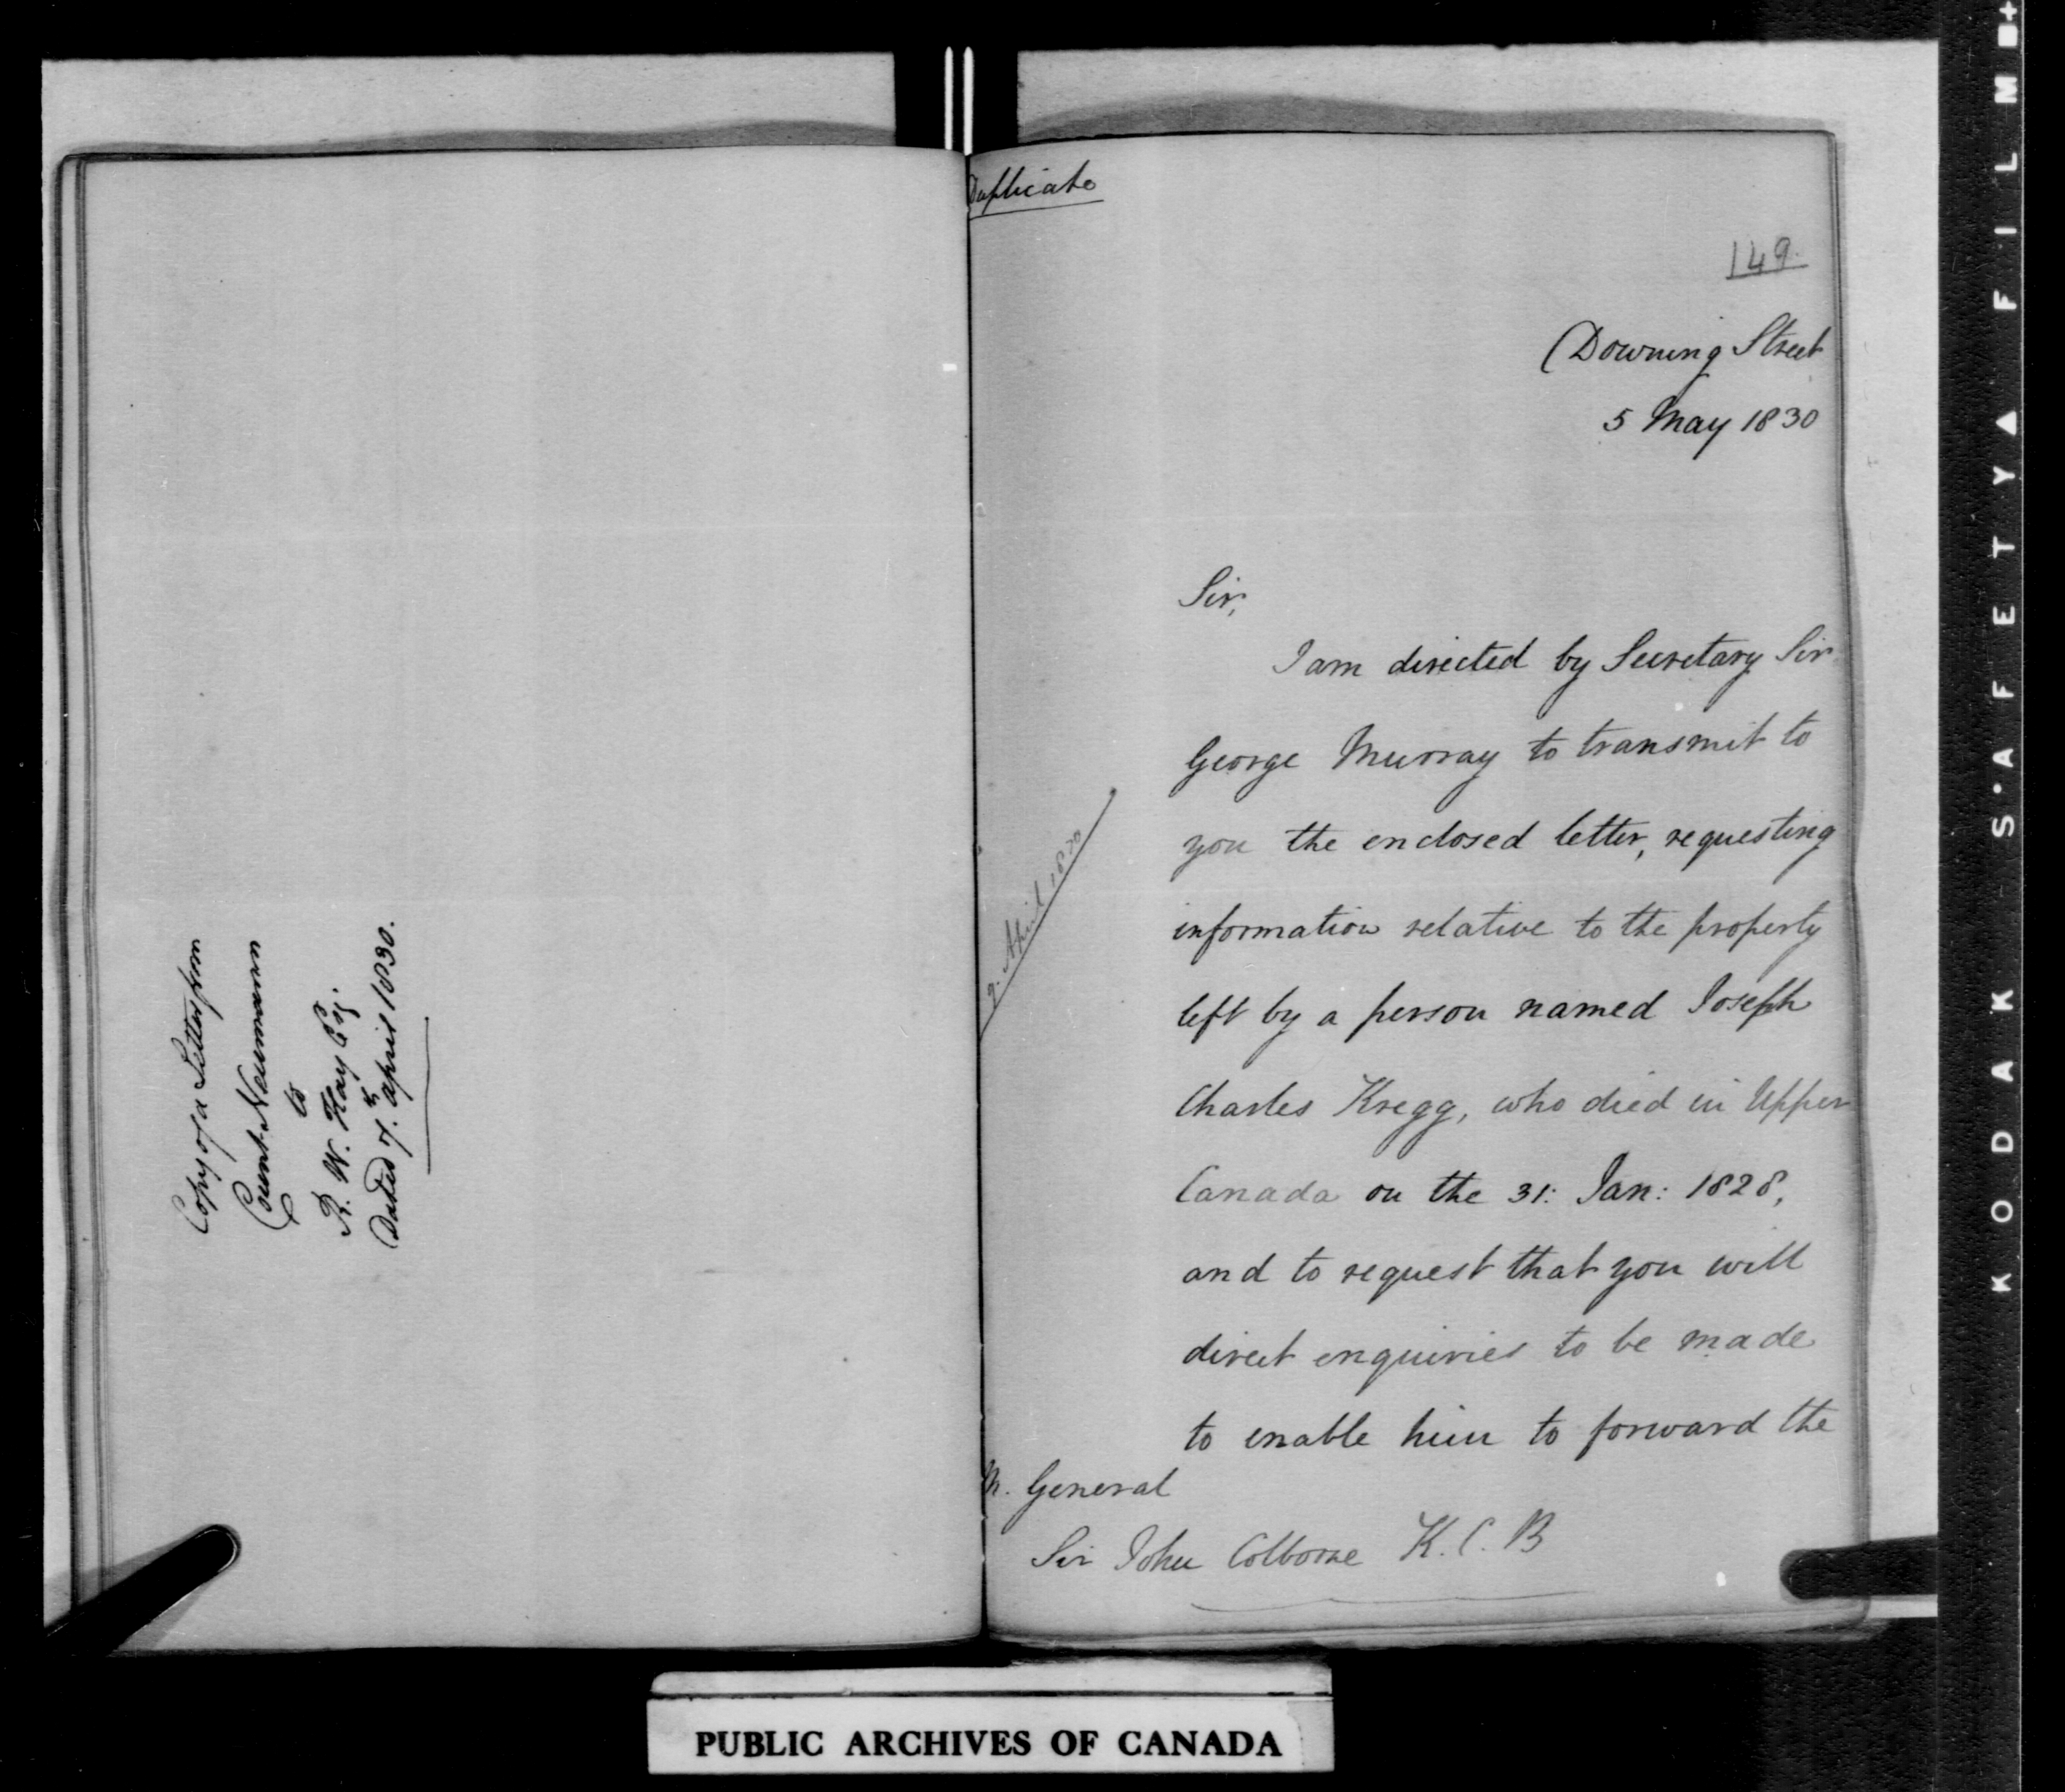 Copy of a Letter from
Count Neumann
to
R. W. Hay Esq.
Dated 7. April 1830.
Duplicate
149.
Downing Street
5 May 1830
Sir,
I am directed by Secretary Sir
George Murray to transmit to
you the enclosed letter, requesting
information relative to the property
left by a person named Joseph
Charles Kregg, who died in Upper
Canada on the 31: Jan: 1828,
and to request that you will
direct enquiries to be made
to enable him to forward the
April 1830
M. General
Sir John Colborne K. C. B
PUBLIC ARCHIVES OF CANADA
KODAK S'AFETY FILM